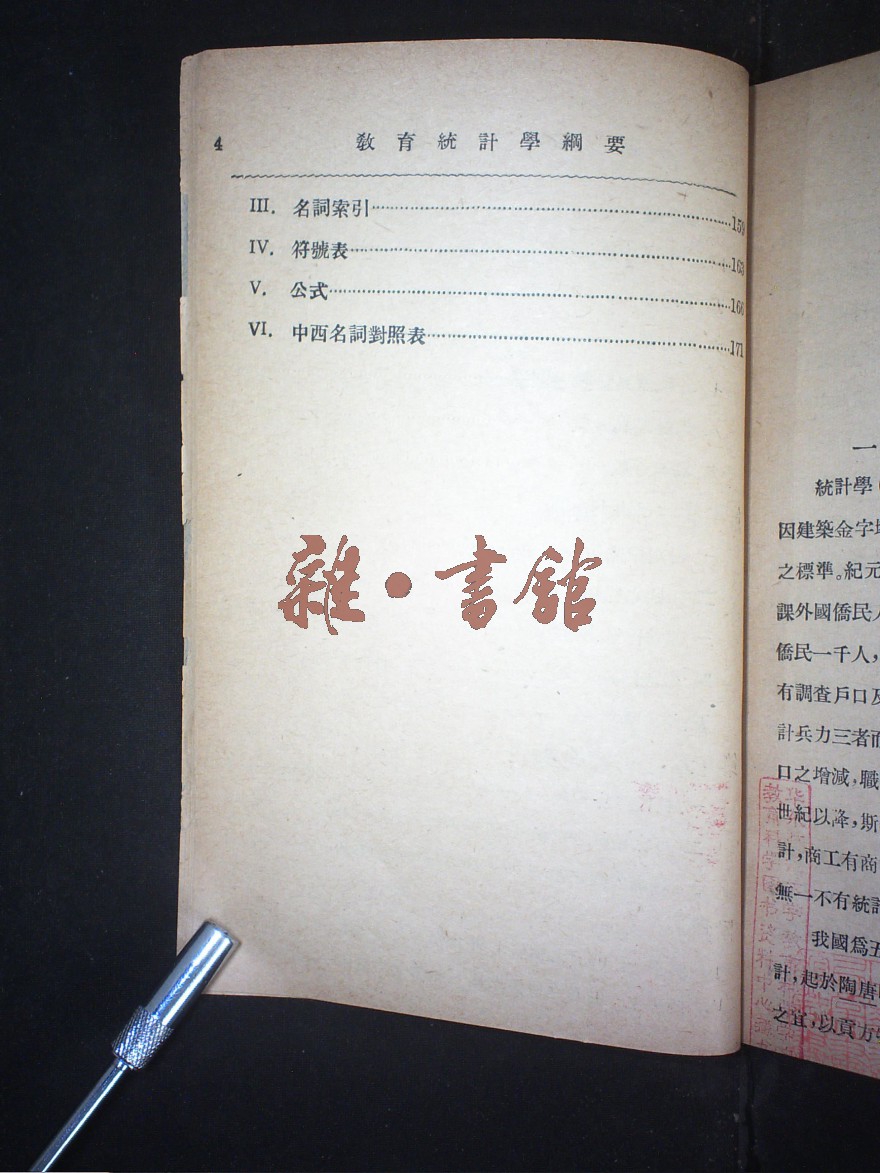 4 教育統計學綱要
III. 名詞索引 159
IV. 符號表 163
V. 公式 166
VI. 中西名詞對照表 171
雜・書館
一
統計學
因建築金字
之標準。紀元
課外國僑民
僑民一千人，
有調查戶口及
計兵力三者而
口之增減，職
世紀以降，斯
計，商工有商
無一不有統計
我國爲五
計，起於陶唐
之宜，以貢方